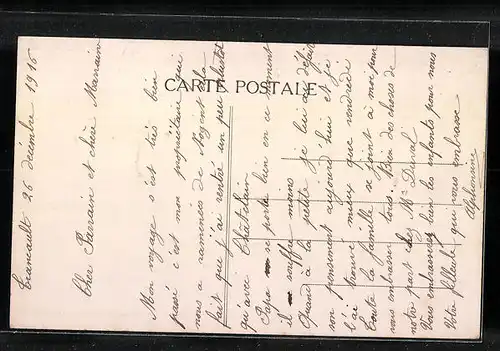 CARTE POSTALE
26 décembre 1916
Cher Parrain et chère Marraine
Mon voyage s'est très bien
passé c'est mon propriétaire qui
nous a ramenées de Nogent cela
fait que j'ai rentré un peu plutôt
qu'avec Châtelain
Papa se porte bien en ce moment
il souffre moins
Quand à la petite je lui ai défait
son pansement aujourd'hui et je
l'ai trouvé mieux que vendredi
Toute la famille se joint à moi pour
vous embrasser tous. Bien des choses de
notre part chez Mr Duval
Vous embrasserez bien les enfants pour nous
Votre filleule qui vous embrasse
Alphonsine